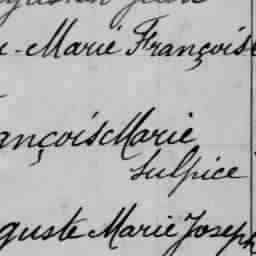 -Marie François
ançois Marie
Sulpice
guste Marie Joseph